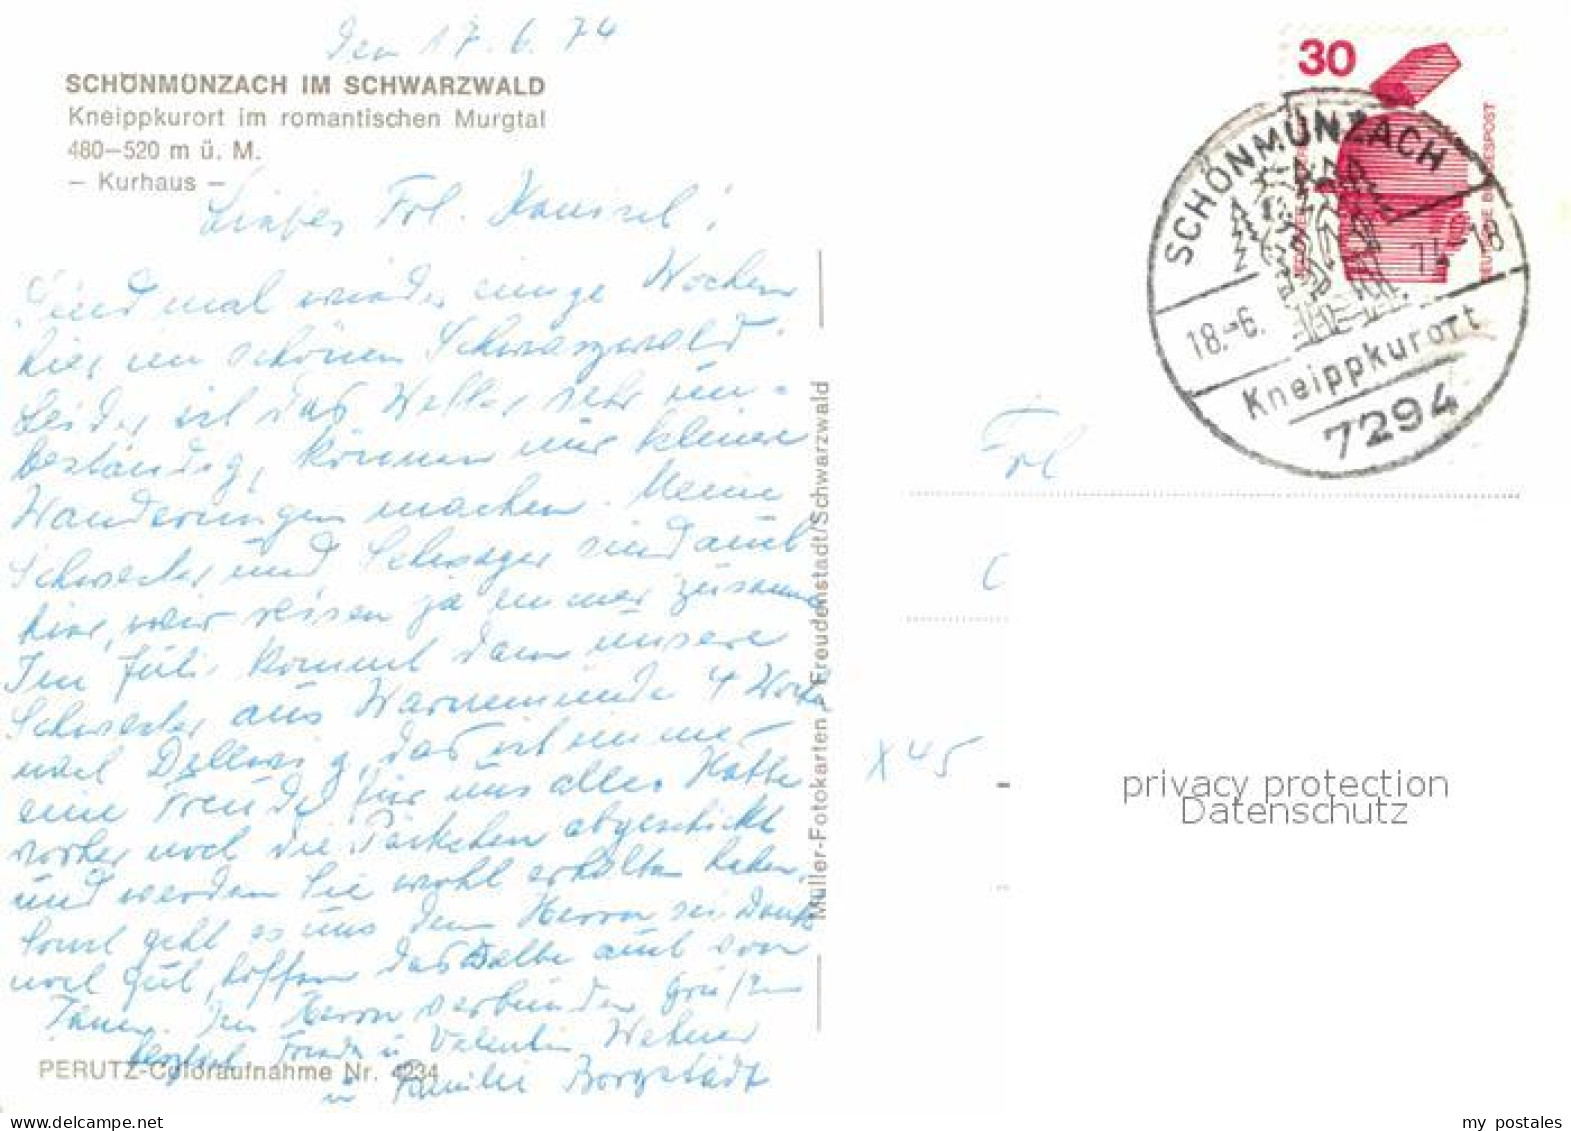 Den 17.6.74
SCHÖNMÜNZACH IM SCHWARZWALD
Kneippkurort im romantischen Murgtal
480–520 m ü. M.
– Kurhaus –
Liebes Frl.
Sind mal wieder einige Wochen
hier im schönen Schwarzwald.
Leider ist das Wetter sehr un=
beständig, können nur kleinere
Wanderungen machen. Meine
Schwester und Schwager sind auch
hier, wir reisen ja immer zusamm
Im Juli kommt dann unsere
Schwester aus Warnemünde 4 Woch
nach Dellwig, das ist immer
eine Freude für uns alle. Hatte
vorher noch die Päckchen abgeschickt
und werden Sie wohl erhalten haben.
Sonst geht es uns dem Herrn sei Dank
noch gut, hoffen dasselbe auch von
Ihnen. Im Herrn verbunden grüßen
herzlich Frieda u Valentin Wehner
u Familie Borgstädt
PERUTZ-Coloraufnahme Nr. 4234
Müller-Fotokarten, Freudenstadt/Schwarzwald
30
DEUTSCHE BUNDESPOST
SCHÖNMÜNZACH
18.-6.
-18
Kneippkurort
7294
Frl
x45
privacy protection
Datenschutz
my postales